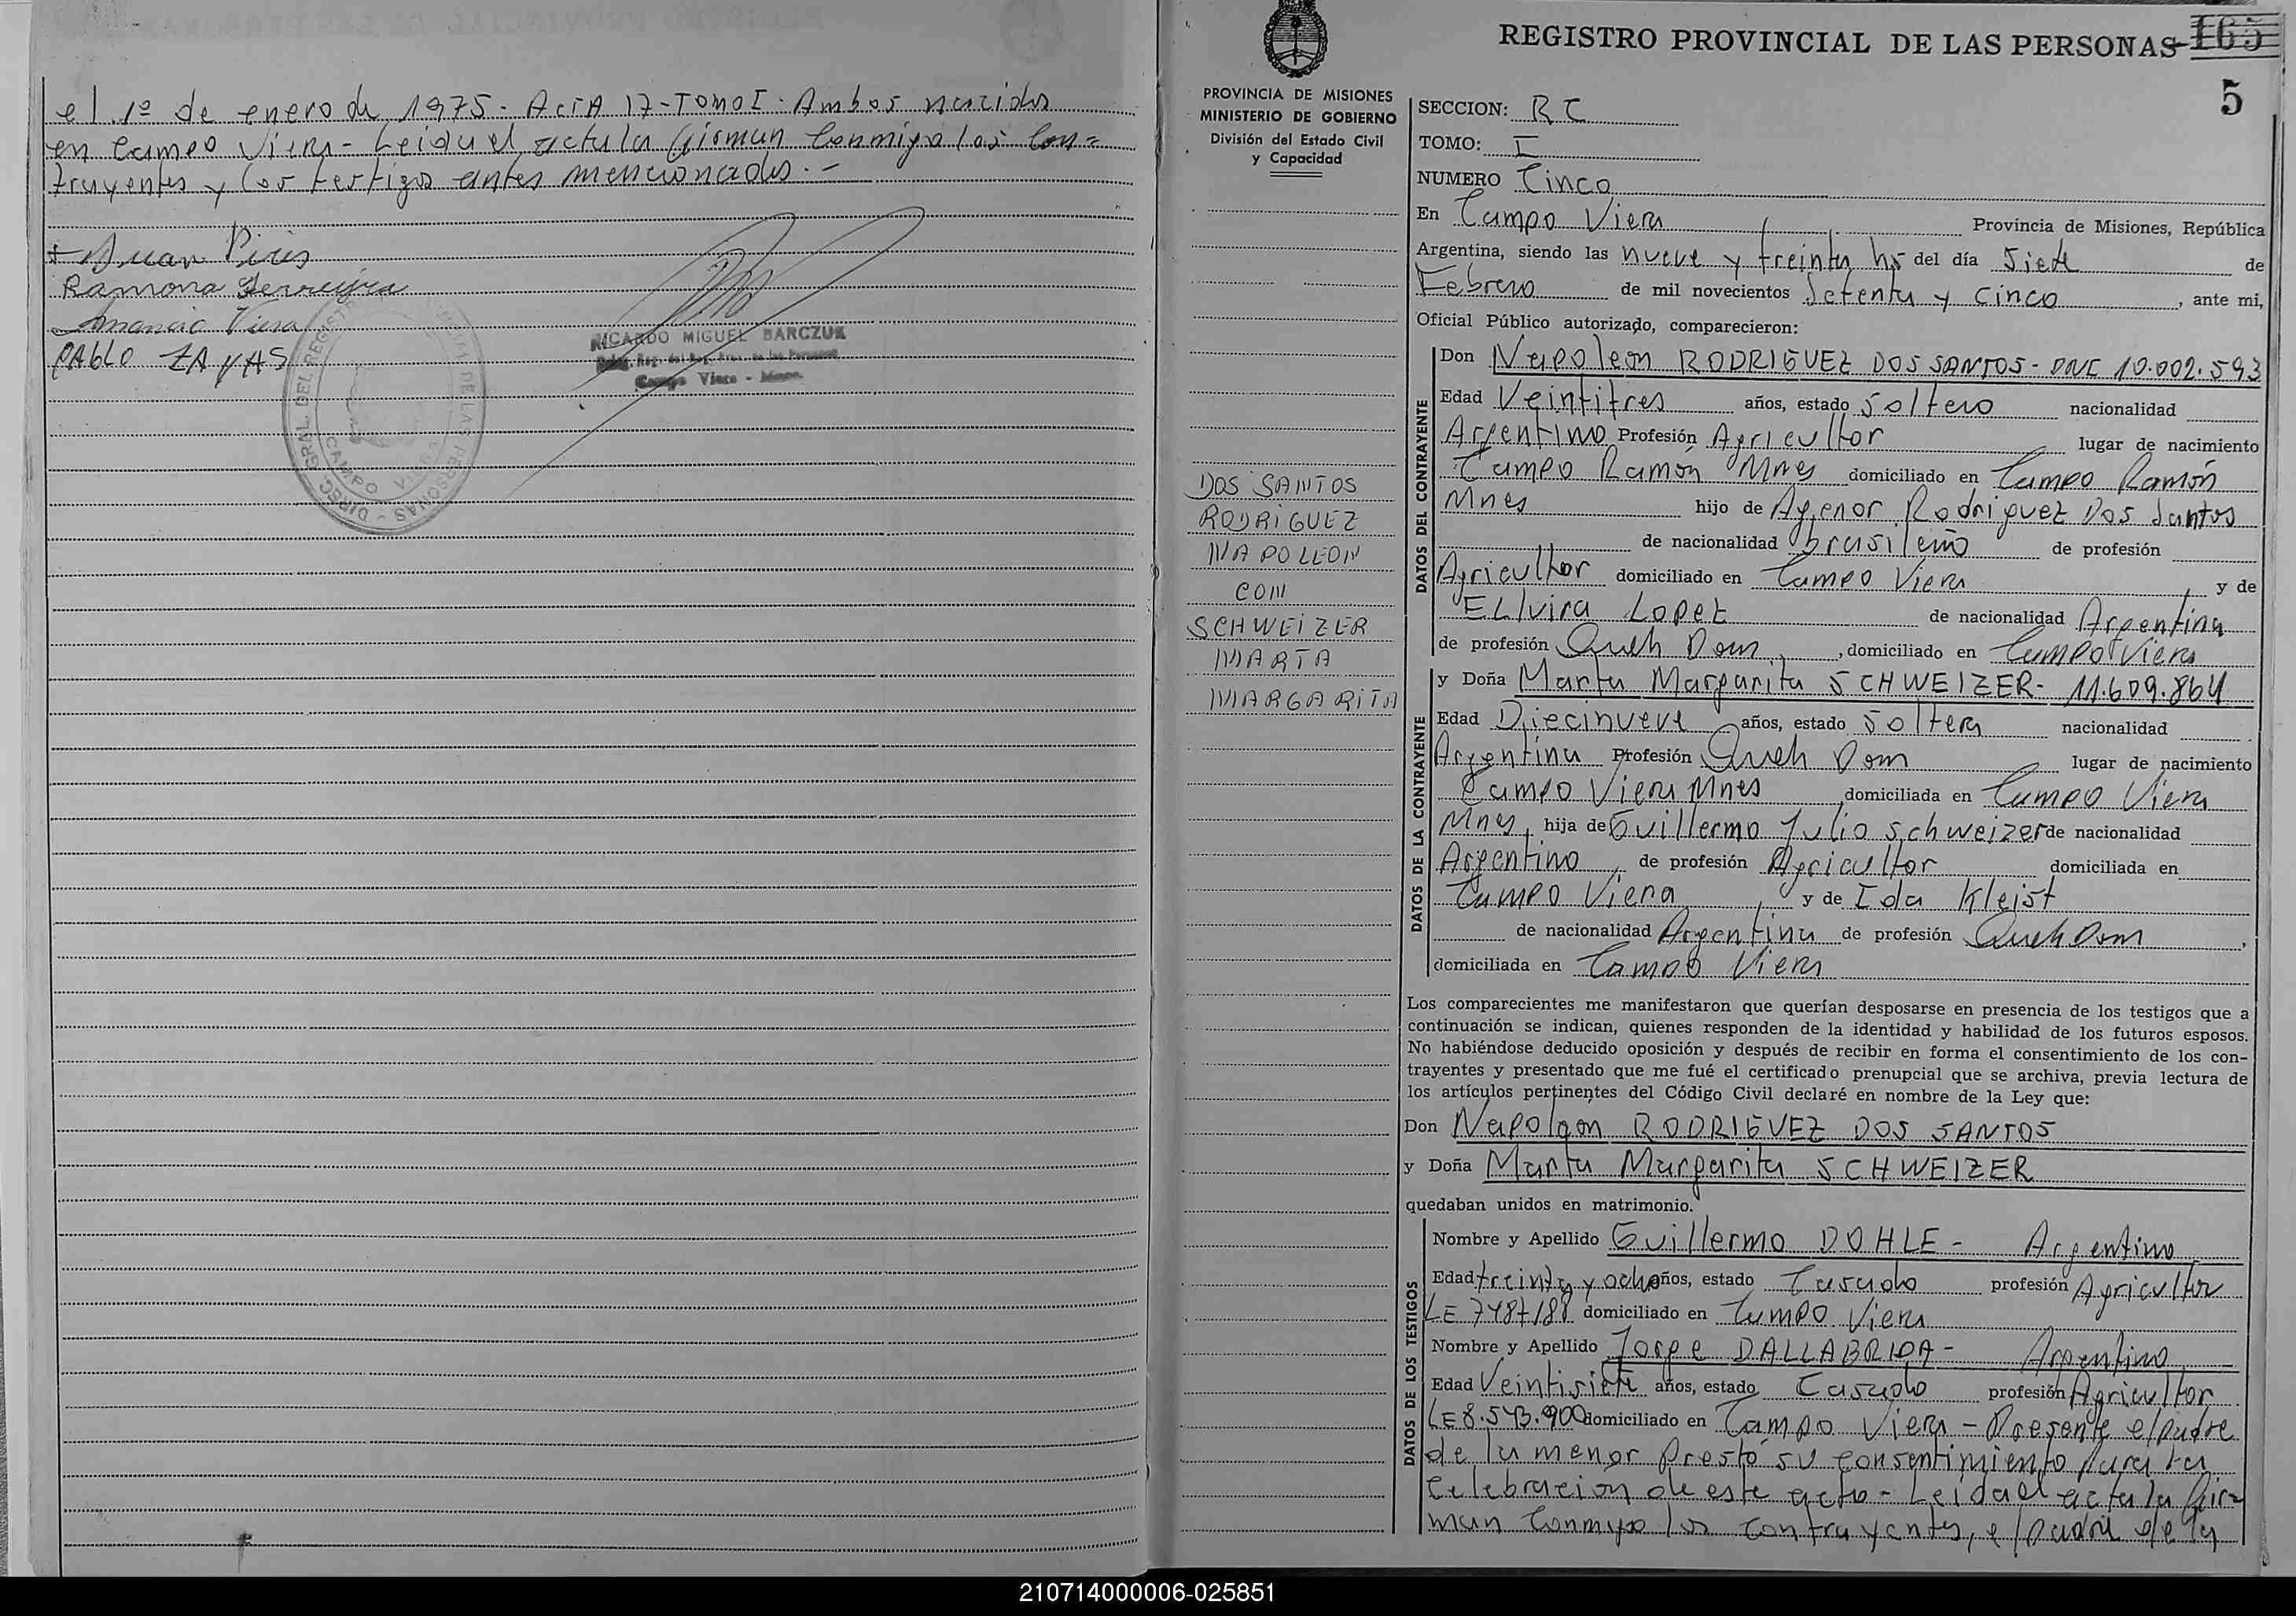 el 1º de enero de 1975 - Acta 17 - Tomo I - Ambos nacidos
en Campo Viera - Leida el acta la firman conmigo los con=
trayentes y los testigos antes mencionados. -
+ Juan Pires
Ramona Ferreyra
Amancio Viera
PABLO ZAYAS
RICARDO MIGUEL BARCZUK
Campo Viera - Mnes.
REGISTRO PROVINCIAL DE LAS PERSONAS
165
5
PROVINCIA DE MISIONES
MINISTERIO DE GOBIERNO
División del Estado Civil
y Capacidad
DOS SANTOS
RODRIGUEZ
NAPOLEON
CON
SCHWEIZER
MARTA
MARGARITA
SECCION: RC
TOMO: I
NUMERO Cinco
En Campo Viera Provincia de Misiones, República
Argentina, siendo las nueve y treinta hs del día Siete de
Febrero de mil novecientos Setenta y cinco, ante mi,
Oficial Público autorizado, comparecieron:
DATOS DEL CONTRAYENTE
Don Napoleon RODRIGUEZ DOS SANTOS - DNI 10.002.593
Edad Veintitres años, estado soltero nacionalidad
Argentino Profesión Agricultor lugar de nacimiento
Campo Ramón Mnes domiciliado en Campo Ramón
Mnes hijo de Agenor Rodriguez Dos Santos
de nacionalidad brasileño de profesión
Agricultor domiciliado en Campo Viera y de
ELlvira Lopez de nacionalidad Argentina
de profesión Queh Dom, domiciliado en Campo Viera
DATOS DE LA CONTRAYENTE
y Doña Marta Margarita SCHWEIZER - 11.609.864
Edad Diecinueve años, estado soltera nacionalidad
Argentina Profesión Queh Dom lugar de nacimiento
Campo Viera Mnes domiciliada en Campo Viera
Mnes, hija de Guillermo Julio Schweizer de nacionalidad
Argentino, de profesión Agricultor domiciliada en
Campo Viera, y de Ida Kleist
de nacionalidad Argentina de profesión Queh Dom,
domiciliada en Campo Viera
Los comparecientes me manifestaron que querían desposarse en presencia de los testigos que a
continuación se indican, quienes responden de la identidad y habilidad de los futuros esposos.
No habiéndose deducido oposición y después de recibir en forma el consentimiento de los con-
trayentes y presentado que me fué el certificado prenupcial que se archiva, previa lectura de
los artículos pertinentes del Código Civil declaré en nombre de la Ley que:
Don Napoleon RODRIGUEZ DOS SANTOS
y Doña Marta Margarita SCHWEIZER
quedaban unidos en matrimonio.
DATOS DE LOS TESTIGOS
Nombre y Apellido Guillermo DOHLE - Argentino
Edad treinta y ocho años, estado Casado profesión Agricultor
LE 7487188 domiciliado en Campo Viera
Nombre y Apellido Jorge DALLABRIDA - Argentino
Edad Veintisiete años, estado Casado profesión Agricultor
LE 8.543.900 domiciliado en Campo Viera - Presente el padre
de la menor prestó su consentimiento para la
celebracion de este acto - Leida el acta la fir=
man conmigo los contrayentes, el padre de la
210714000006-025851